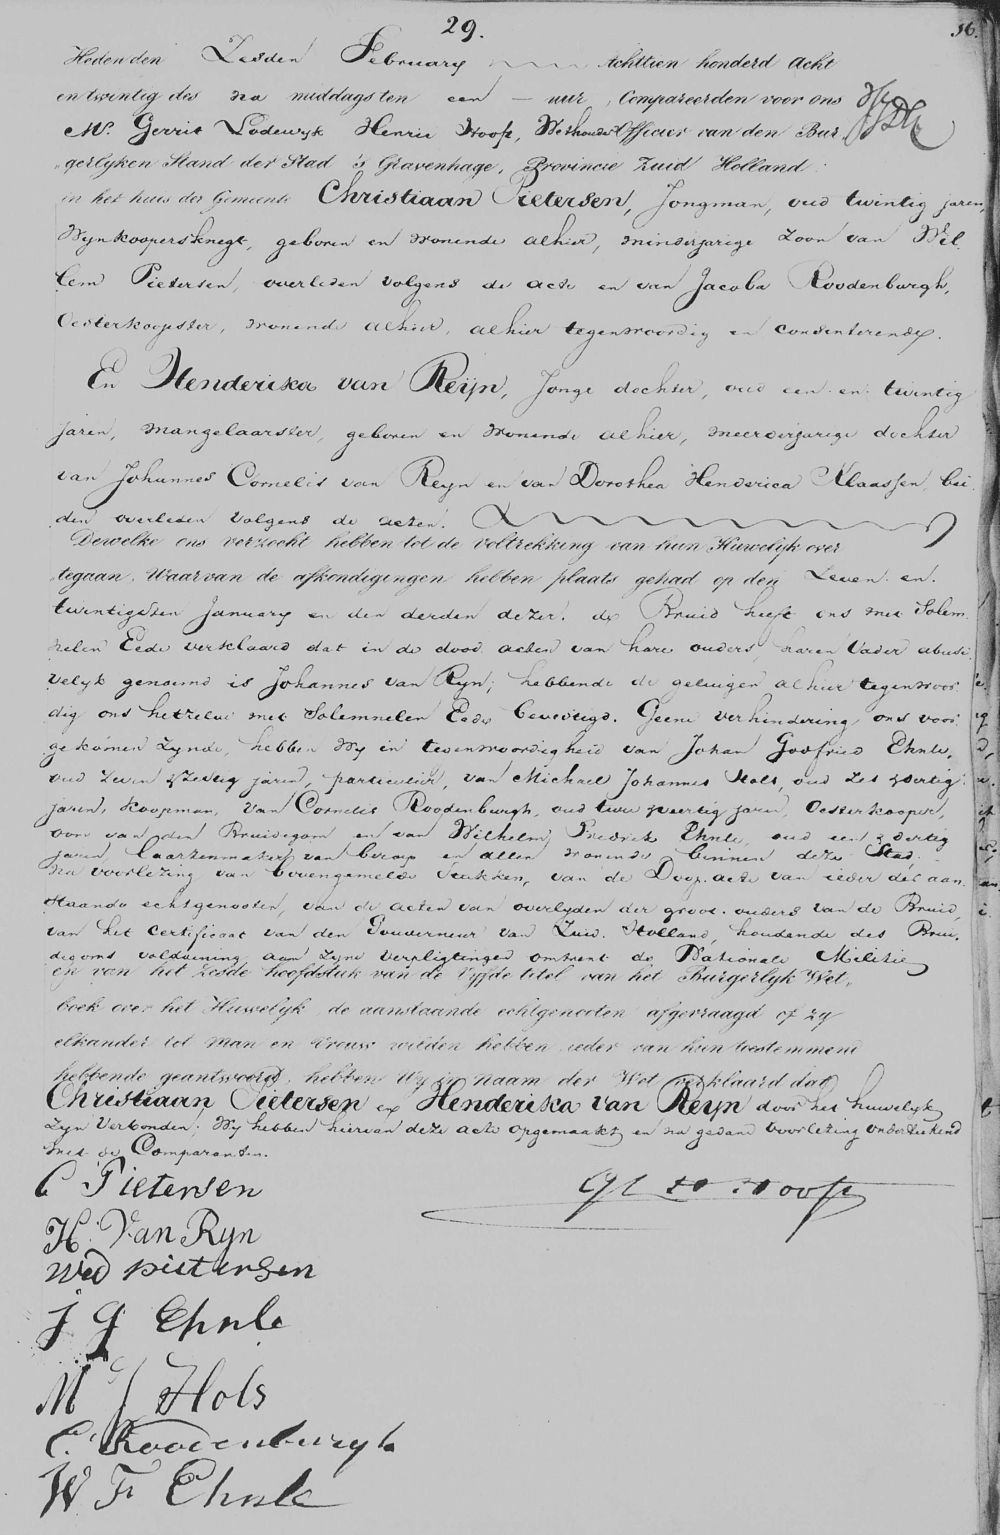 29.
56.
Heden den Zesden February Achttien honderd Acht
en twintig des na middags ten een uur, Compareerden voor ons
Mr. Gerrit Lodewyk Henric Hooft, Wethouder Officier van den Bur
gerlyken Stand der Stad 's Gravenhage, Provincie Zuid Holland
in het huis der Gemeente Christiaan Pietersen, Jongman, oud twintig jaren,
Wynkoopersknegt, geboren en wonende alhier, minderjarige Zoon van Wil
lem Pietersen, overleden volgens de acte en van Jacoba Roodenburgh,
Oesterkoopster, wonende alhier, alhier tegenwoordig en consenterende.
En Henderika van Reijn, Jonge dochter, oud een en twintig
jaren, mangelaarster, geboren en wonende alhier, meerderjarige dochter
van Johannes Cornelis van Reyn en van Dorothea Henderica Klaassen, bei
den overleden volgens de acten.
Dewelke ons verzocht hebben tot de voltrekking van hun Huwelyk over
tegaan, Waarvan de afkondigingen hebben plaats gehad op den Zeven en
twintigsten January en den derden dezer. de Bruid heeft ons met Solem
nelen Eede verklaard dat in de dood acten van hare ouders, haren Vader abusi
velyk genoemd is Johannes van Ryn; hebbende de getuigen alhier tegenwoor
dig ons hetzelve met Solemnelen Eede bevestigd. Geene verhindering ons voor
gekomen zynde, hebben Wy in tegenwoordigheid van Johan Godfried Ehnle,
oud Zeven & Zestig jaren, particulier, van Michael Johannes Hols, oud Zes & dertig
jaren, koopman, van Cornelis Roodenburgh, oud twee & veertig jaren, Oesterkooper,
oom van den Bruidegom en van Wilhelm Fredrik Ehnle, oud een & dertig
jaren, laarzenmaker van beroep en allen wonende binnen deze Stad.
Na voorlezing van bovengemelde Stukken, van de Doop acte van ieder des aan
staande echtgenooten, van de acten van overlyden der groot ouders van de Bruid,
van het certificaat van den Gouverneur van Zuid Holland, houdende des Brui
degoms voldoening aan Zyne verpligtingen omtrent de Nationale Militie
en van het zesde hoofdstuk van de Vyfde titel van het Burgerlyk Wet
boek over het Huwelyk, de aanstaande echtgenooten afgevraagd of zy
elkander tot man en vrouw wilden hebben, ieder van hun toestemmend
hebbende geantwoord, hebben Wy in naam der Wet verklaard dat
Christiaan Pietersen en Henderika van Reyn door het huwelyk
Zyn Verbonden; Wy hebben hiervan deze acte opgemaakt, en na gedane voorlezing onderteekend
met de Comparanten.
C Pietersen
H. Van Ryn
Wed pietersen
J G Ehnle
M J Hols
C. Roodenburgh
W F Ehnle